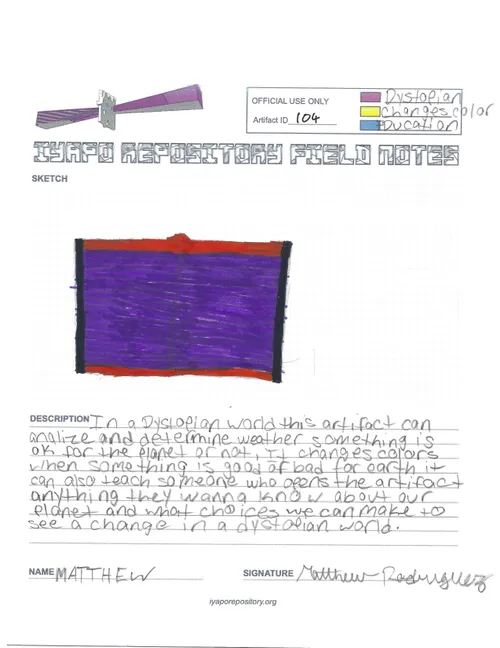 OFFICIAL USE ONLY
Artifact ID 104
Dystopian
changes color
Education
IYAPO REPOSITORY FIELD NOTES
SKETCH
DESCRIPTION In a Dystopian world this artifact can
analize and determine weather something is
ok for the planet or not, It changes colors
when something is good or bad for earth it
can also teach someone who opens the artifact
anything they wanna know about our
planet and what choices we can make to
see a change in a dystopian world.
NAME MATTHEW
SIGNATURE Matthew Rodriguez
iyaporepository.org